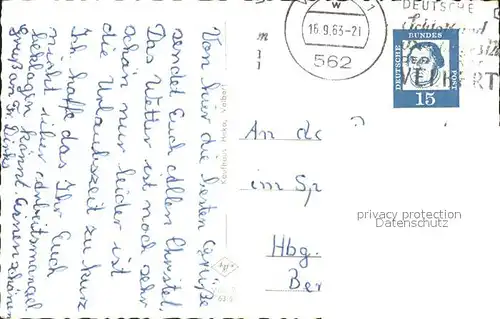 Von hier die besten Grüße
sendet Euch allen Christel.
Das Wetter ist noch sehr
schön nur leider ist
die Urlaubszeit zu kurz
Ich hoffe das Ihr Euch
nicht über Arbeitsmangel
beklagen könnt.
Gruß an Fr.
schönen
Kaufhaus Hinke, Velbert
W
16.9.63-21
562
DEUTSCHE
BUNDES
POST
DEUTSCHE
15
An de
im Sp
Hbg.
Ber
privacy protection
Datenschutz